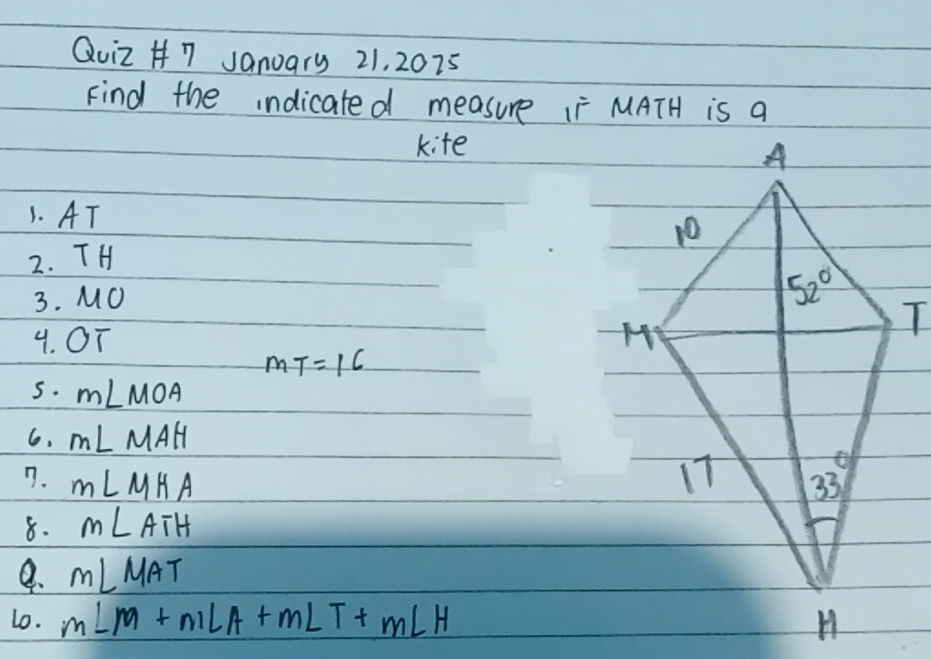 Quiz # 7 January 21, 2025
Find the indicated measure if MATH is a
kite
A
1. AT
10
2. TH
52°
3. MO
M
T
4. OT
mT = 16
5. m∠MOA
6. m∠ MAH
17
33°
7. m∠MHA
8. m∠ATH
9. m∠MAT
10. m∠M + m∠A + m∠T + m∠H
H